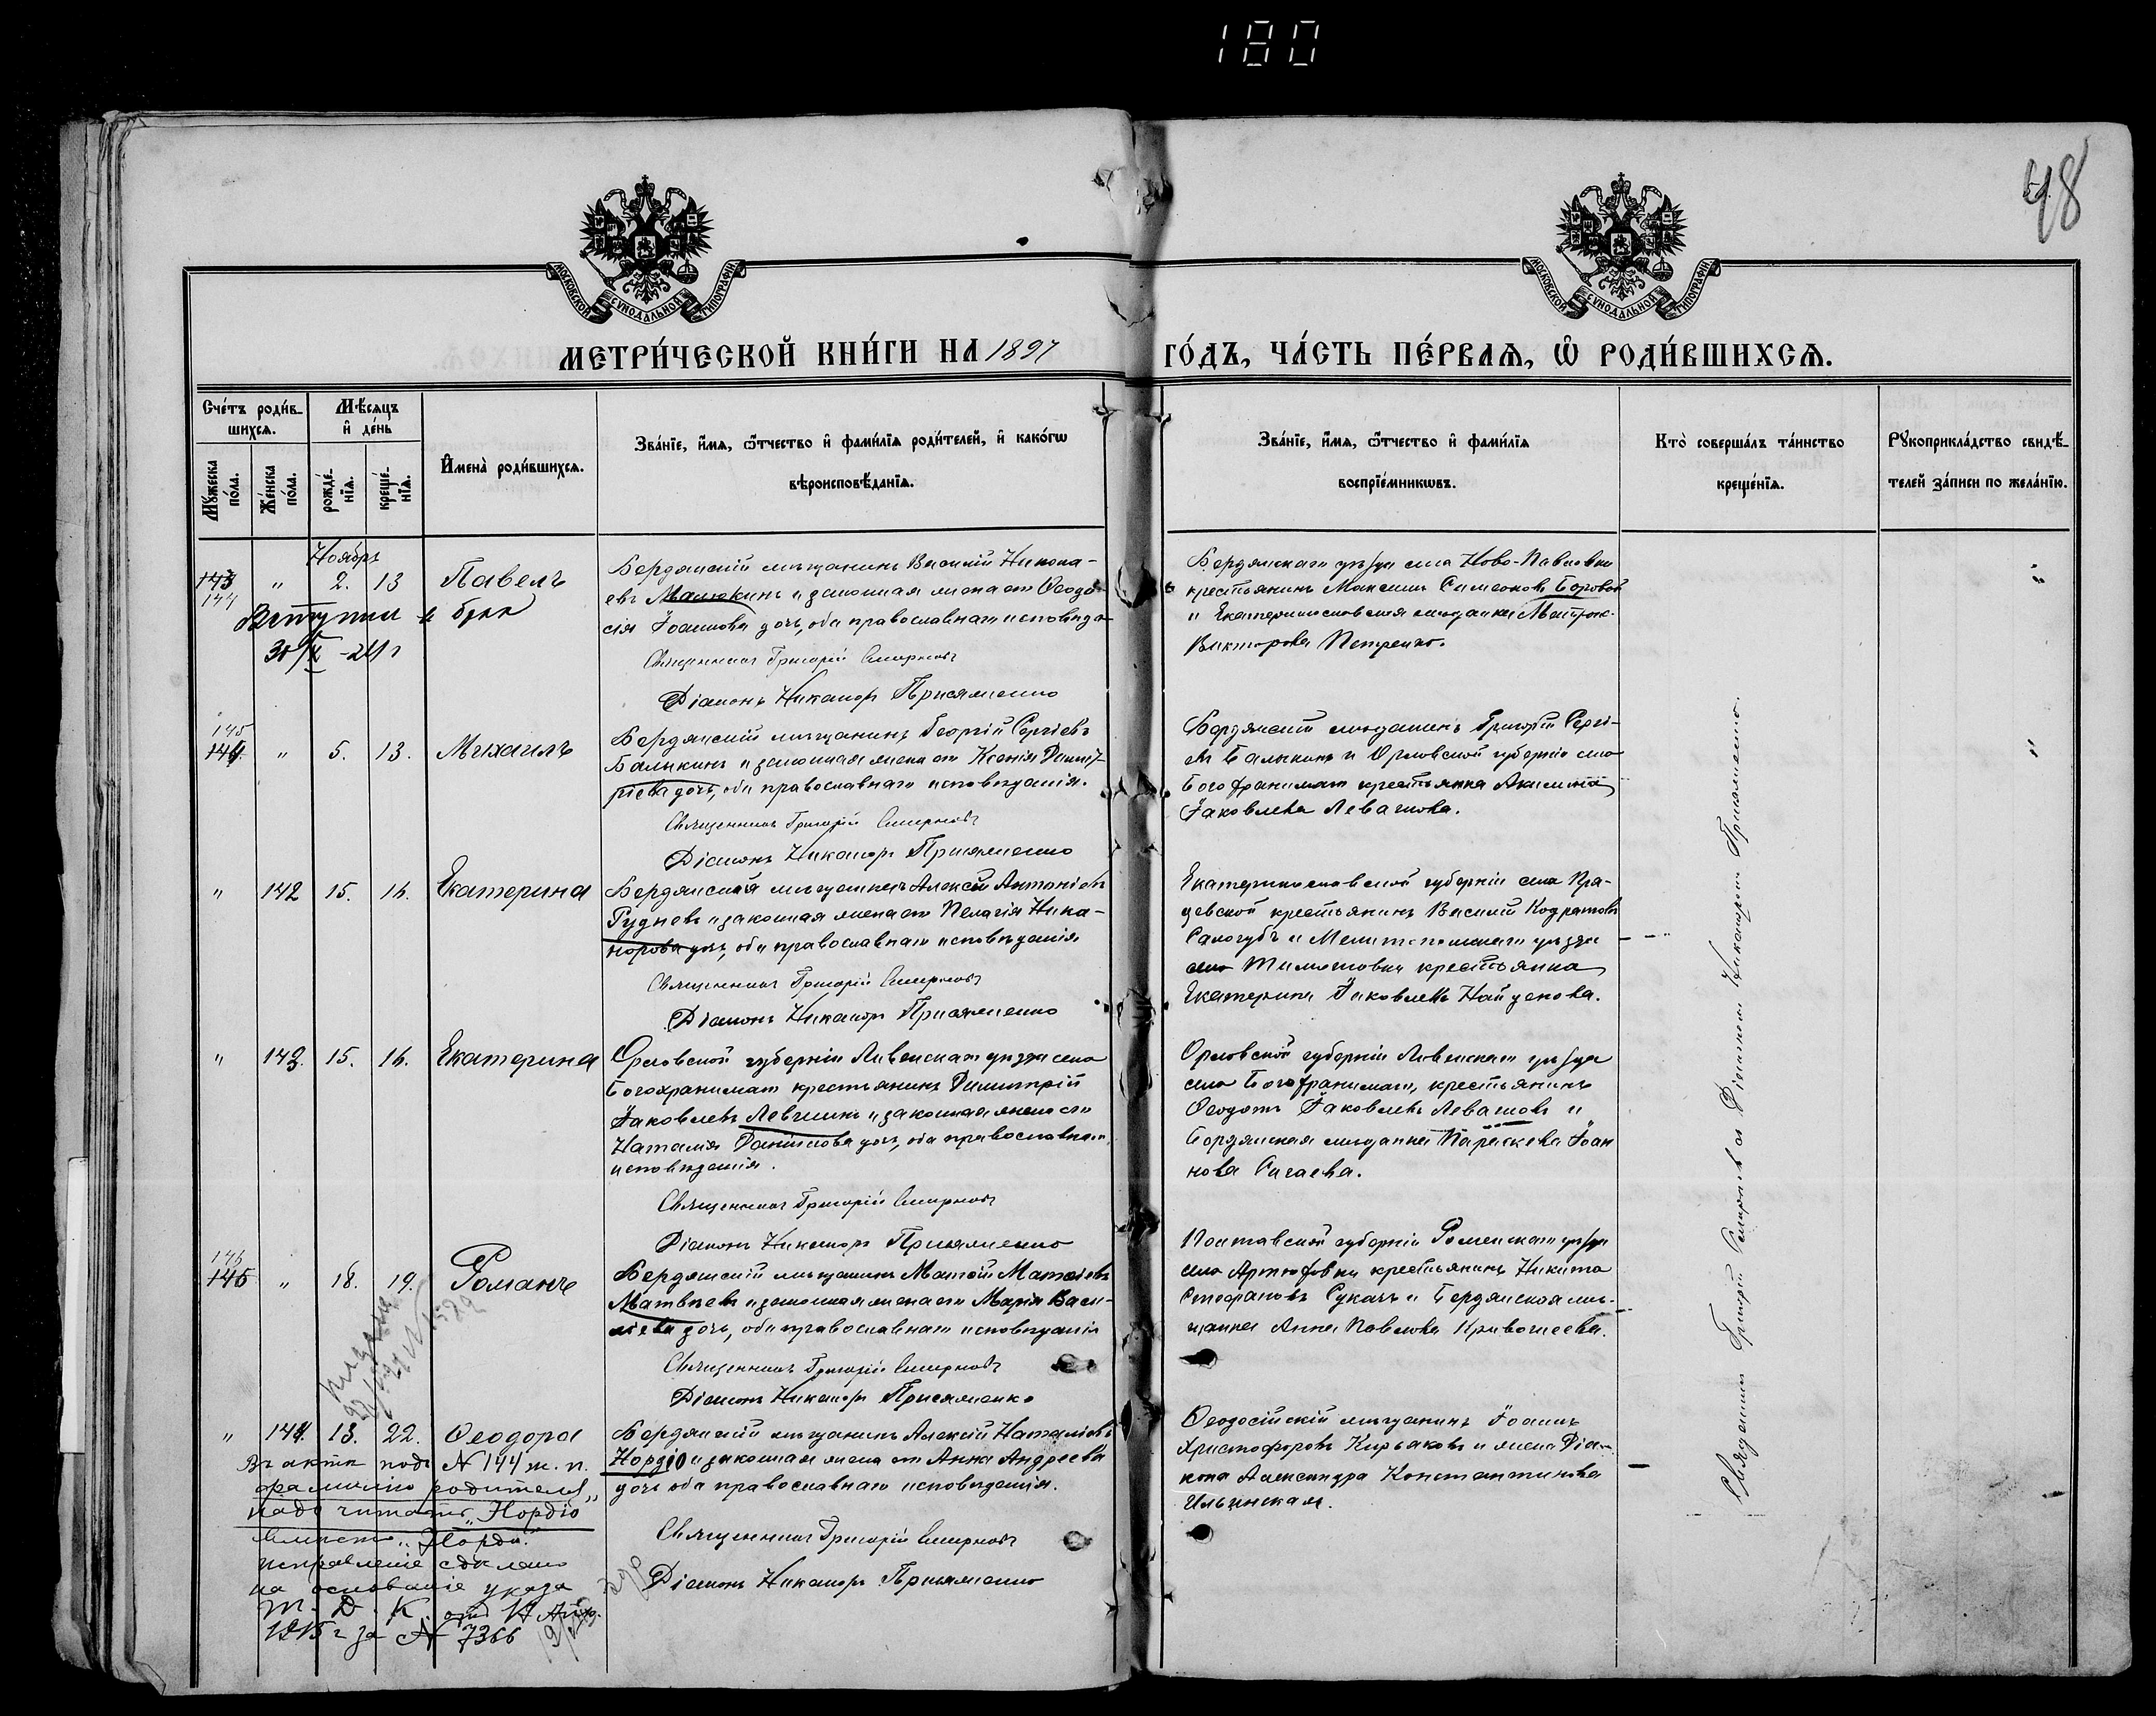 180
48
МОСКОВСКОЙ СУНОДАЛЬНОЙ ТИПОГРАФІИ
МОСКОВСКОЙ СУНОДАЛЬНОЙ ТИПОГРАФІИ
МЕТРИ́ЧЕСКОЙ КНИ́ГИ НА 1897 ГО́ДЪ, ЧА́СТЬ ПЕ́РВАѦ, Ѡ РОДИ́ВШИХСѦ.
Сче́тъ роди́в-
шихсѧ.
Мꙋжеска по́ла.
Же́нска по́ла.
Мѣ́сяцъ и де́нь
рожде́-
нїѧ.
креще́-
нїѧ.
Имена̀ роди́вшихсѧ.
Зва́нїе, и́мѧ, ѻ́тчество и фами́лїѧ роди́телей, и како́гѡ
вѣроисповѣ́данїѧ.
Зва́нїе, и́мѧ, ѻ́тчество и фами́лїѧ
воспрїе́мникѡвъ.
Кто̀ соверша́лъ та́инство
креще́нїѧ.
Рꙋкоприкла́дство свидѣ́-
телей за́писи по жела́нїю.
Ноябрь
143 " 2. 13 Павелъ
144
Вступил в брак
30/X -24 г
Бердянскій мѣщанинъ Василій Никола-
евъ Малюкинъ и законная жена его Ѳеодо-
сія Іоаннова дочь, оба православнаго исповѣда
Священникъ Григорій Смирновъ
Діаконъ Никаноръ Присяженко
Бердянскаго уѣзда села Ново-Павловки
крестьянинъ Максимъ Симеоновъ Боровой
и Екатеринославская мѣщанка Матрон.
Викторова Петренко.
145
144. " 5. 13. Михаилъ
Бердянскій мѣщанинъ Георгій Сергіевъ
Балыкинъ и законная жена его Ксенія Димит-
ріева дочь, оба православнаго исповѣданія.
Священникъ Григорій Смирновъ
Діаконъ Никаноръ Присяженко
Бердянскій мѣщанинъ Григорій Сергі-
евъ Балыкинъ и Орловской губерніи села
Богохранимаго крестьянка Акилина
Іаковлева Левашова.
" 142 15. 16. Екатерина
Бердянскій мѣщанинъ Алексій Антоніевъ
Рудневъ и законная жена его Пелагія Ника-
норова дочь, оба православнаго исповѣданія
Священникъ Григорій Смирновъ
Діаконъ Никаноръ Присяженко
Екатеринославской губерніи села
крестьянинъ Василій Кодратовъ
Салогубъ и Мелитопольскаго уѣзда
села крестьянка
Екатерина Іаковлева Найденова.
" 143. 15. 16. Екатерина
Орловской губерніи Ливенскаго уѣзда села
Богохранимаго крестьянинъ Димитрій
Іаковлевъ Левшинъ и законная жена его
Наталія Даніилова дочь, оба православнаго
исповѣданія.
Священникъ Григорій Смирновъ
Діаконъ Никаноръ Присяженко
Орловской губерніи Ливенскаго уѣзда
села Богохранимаго, крестьянинъ
Ѳеодотъ Іаковлевъ Левашовъ и
Бердянская мѣщанка Параскева Іоан
нова Сигаева.
146
145 " 18. 19. Романъ
Бердянскій мѣщанинъ Матѳій Матѳіевъ
Матвѣевъ и законная жена его Марія Васи-
ліева дочь, оба православнаго исповѣданія
Священникъ Григорій Смирновъ
Діаконъ Никаноръ Присяженко
Полтавской губерніи Роменскаго уѣзда
села Артюховки крестьянинъ Никита
Стефановъ Сукачъ и Бердянская мѣ-
щанка Анна Павлова Кривошеева.
" 144. 13. 22. Ѳеодора
Бердянскій мѣщанинъ Алексій Наталіевъ
Нордіо и законная жена его Анна Андреева
дочь оба православнаго исповѣданія.
Священникъ Григорій Смирновъ
Діаконъ Никаноръ Присяженко
Ѳеодосійскій мѣщанинъ Іоаннъ
Христофоровъ Кирьяковъ и жена Діа-
кона Александра Константинова
Ильинская.
Въ актѣ подъ № 144 ж. п.
фамилію родителя
надо читать „Нордіо
вмѣсто „Норди."
Исправленіе сдѣлано
на основаніе указа
Т. Д. К. отъ
1915 г за № 7366
Священникъ Григорій Смирновъ съ Діакономъ Никаноромъ Присяженко.